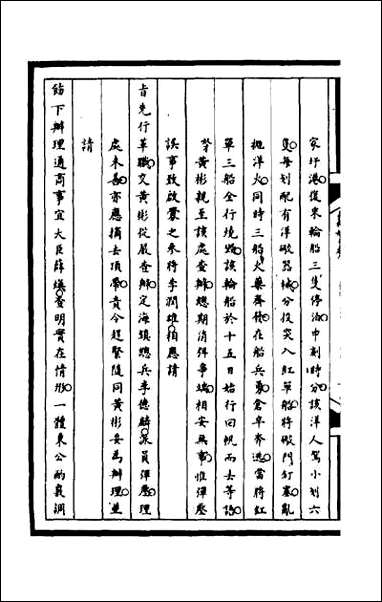 家圩港復來輪船三隻停泊申刻時分該洋人駕小划六
隻每划配有洋礮器械分投突入紅單船將礮門釘塞亂
擲洋火同時三船火藥齊發在船兵勇倉卒奔逃當將紅
單三船全行燒燬該輪船於十五日始行回帆而去等語
黃彬親至該處查辦總期消弭事端相安無事惟彈壓
誤事致啟釁之參將李潤雄相應請
旨先行革職交黃彬從嚴查辦定海鎮總兵李德麟派員彈壓理
處未善亦應摘去頂帶責令趕緊隨同黃彬妥為辦理並
請
飭下辦理通商事宜大臣薛煥查明實在情形一體秉公酌裁調